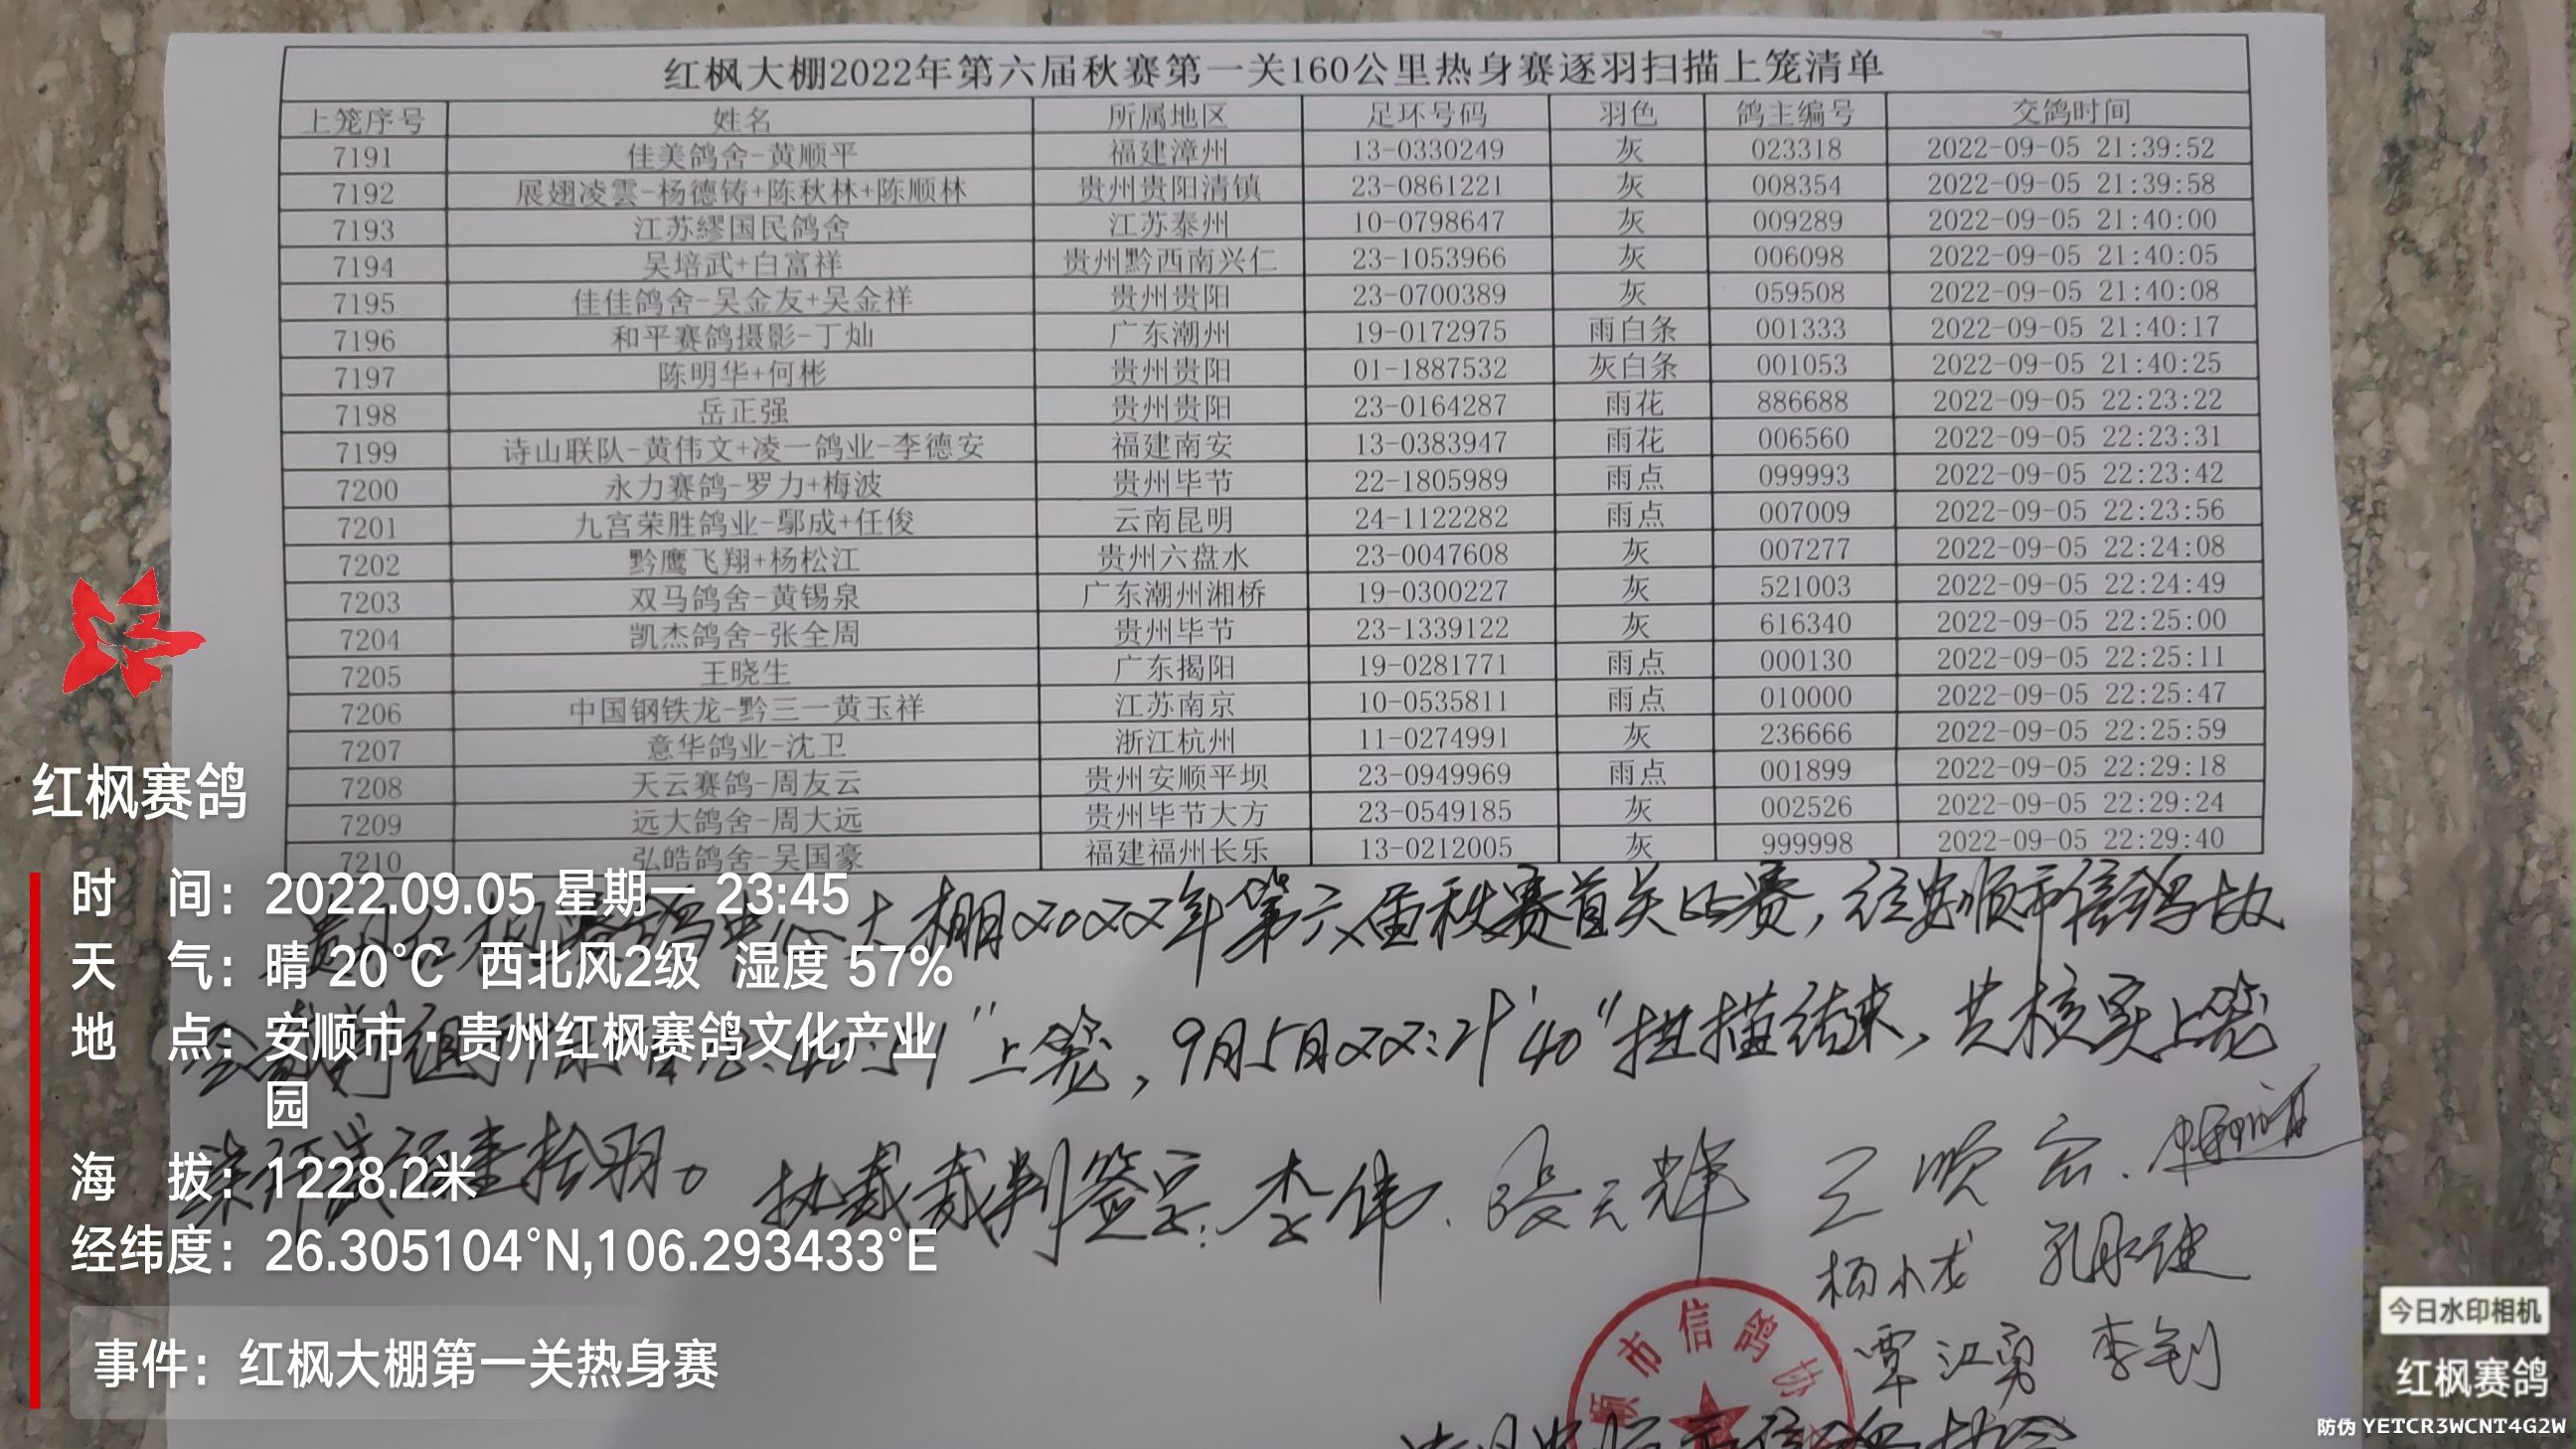 红枫大棚2022年第六届秋赛第一关160公里热身赛逐羽扫描上笼清单
上笼序号 姓名 所属地区 足环号码 羽色 鸽主编号 交鸽时间
7191 佳美鸽舍-黄顺平 福建漳州 13-0330249 灰 023318 2022-09-05 21:39:52
7192 展翅凌雲-杨德铸+陈秋林+陈顺林 贵州贵阳清镇 23-0861221 灰 008354 2022-09-05 21:39:58
7193 江苏繆国民鸽舍 江苏泰州 10-0798647 灰 009289 2022-09-05 21:40:00
7194 吴培武+白富祥 贵州黔西南兴仁 23-1053966 灰 006098 2022-09-05 21:40:05
7195 佳佳鸽舍-吴金友+吴金祥 贵州贵阳 23-0700389 灰 059508 2022-09-05 21:40:08
7196 和平赛鸽摄影-丁灿 广东潮州 19-0172975 雨白条 001333 2022-09-05 21:40:17
7197 陈明华+何彬 贵州贵阳 01-1887532 灰白条 001053 2022-09-05 21:40:25
7198 岳正强 贵州贵阳 23-0164287 雨花 886688 2022-09-05 22:23:22
7199 诗山联队-黄伟文+凌一鸽业-李德安 福建南安 13-0383947 雨花 006560 2022-09-05 22:23:31
7200 永力赛鸽-罗力+梅波 贵州毕节 22-1805989 雨点 099993 2022-09-05 22:23:42
7201 九宫荣胜鸽业-鄢成+任俊 云南昆明 24-1122282 雨点 007009 2022-09-05 22:23:56
7202 黔鹰飞翔+杨松江 贵州六盘水 23-0047608 灰 007277 2022-09-05 22:24:08
7203 双马鸽舍-黄锡泉 广东潮州湘桥 19-0300227 灰 521003 2022-09-05 22:24:49
7204 凯杰鸽舍-张全周 贵州毕节 23-1339122 灰 616340 2022-09-05 22:25:00
7205 王晓生 广东揭阳 19-0281771 雨点 000130 2022-09-05 22:25:11
7206 中国钢铁龙-黔三一黄玉祥 江苏南京 10-0535811 雨点 010000 2022-09-05 22:25:47
7207 意华鸽业-沈卫 浙江杭州 11-0274991 灰 236666 2022-09-05 22:25:59
7208 天云赛鸽-周友云 贵州安顺平坝 23-0949969 雨点 001899 2022-09-05 22:29:18
7209 远大鸽舍-周大远 贵州毕节大方 23-0549185 灰 002526 2022-09-05 22:29:24
7210 弘皓鸽舍-吴国豪 福建福州长乐 13-0212005 灰 999998 2022-09-05 22:29:40
大棚2022年第六届秋赛首关比赛，
上笼，9月5日22:29'40"扫描结束，共核实上笼
羽。执裁裁判签字：李伟.张天辉 王顺
杨小龙 孔永健
覃江勇 李钊
顺市信鸽协
红枫赛鸽
时 间：2022.09.05 星期一 23:45
天 气：晴 20℃ 西北风2级 湿度 57%
地 点：安顺市·贵州红枫赛鸽文化产业
园
海 拔：1228.2米
经纬度：26.305104°N,106.293433°E
事件：红枫大棚第一关热身赛
今日水印相机
红枫赛鸽
防伪 YETCR3WCNT4G2W